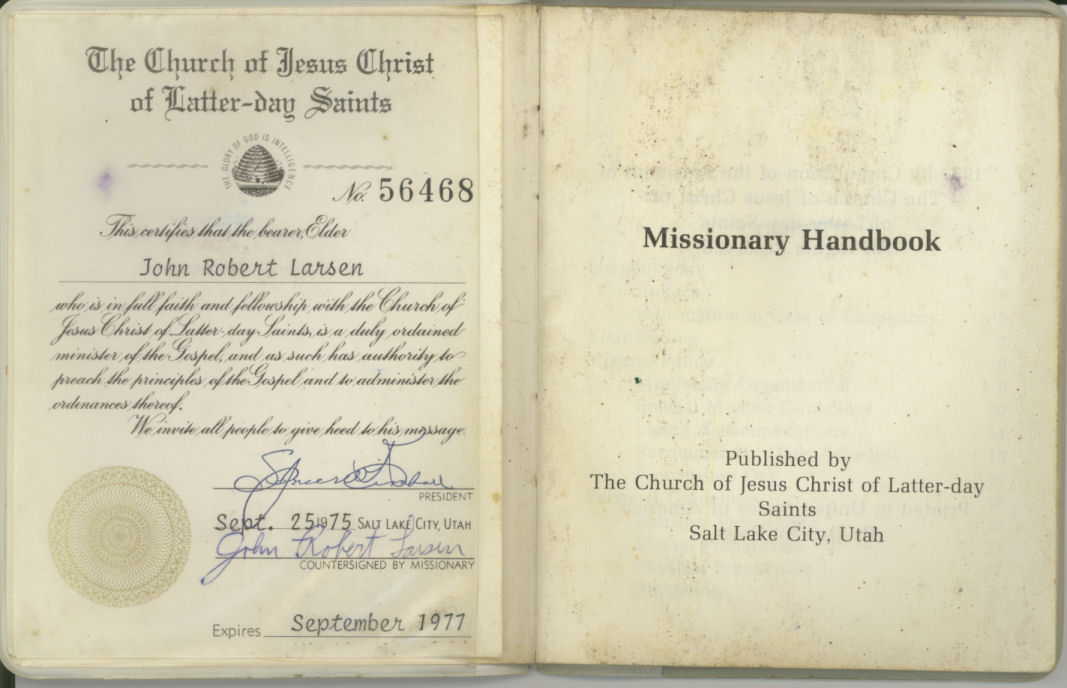 The Church of Jesus Christ
of Latter-day Saints
THE GLORY OF GOD IS INTELLIGENCE
No. 56468
This certifies that the bearer, Elder
John Robert Larsen
who is in full faith and fellowship with the Church of
Jesus Christ of Latter-day Saints, is a duly ordained
minister of the Gospel, and as such has authority to
preach the principles of the Gospel and to administer the
ordinances thereof.
We invite all people to give heed to his message.
Spencer W. Kimball
PRESIDENT
Sept. 25 1975 SALT LAKE CITY, UTAH
John Robert Larsen
COUNTERSIGNED BY MISSIONARY
Expires September 1977
Missionary Handbook
Published by
The Church of Jesus Christ of Latter-day
Saints
Salt Lake City, Utah